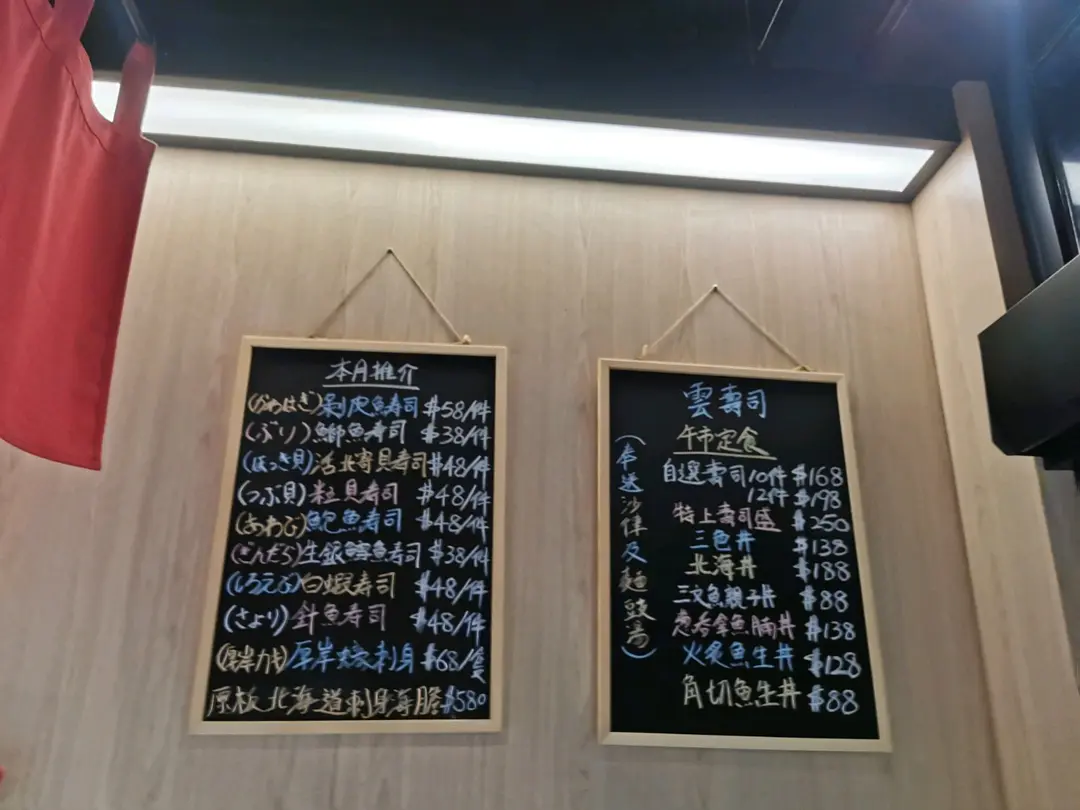 本月推介
(かわはぎ)剥皮魚寿司 $58/件
(ぶり)鰤魚寿司 $38/件
(ほっき貝)活北寄貝寿司 $48/件
(つぶ貝)粒貝寿司 $48/件
(あわび)鮑魚寿司 $48/件
(ぎんだら)生銀鱈魚寿司 $38/件
(しろえび)白蝦寿司 $48/件
(さより)針魚寿司 $48/件
(厚岸カキ)厚岸蠔刺身 $68/隻
原板北海道刺身海膽 $580
雲壽司
午市定食
(奉送沙律及麵豉湯)
自選壽司10件 $168
12件 $198
特上壽司盛 $250
三色丼 $138
北海丼 $188
三文魚親子丼 $88
吞拿魚腩丼 $138
火炙魚生丼 $128
角切魚生丼 $88